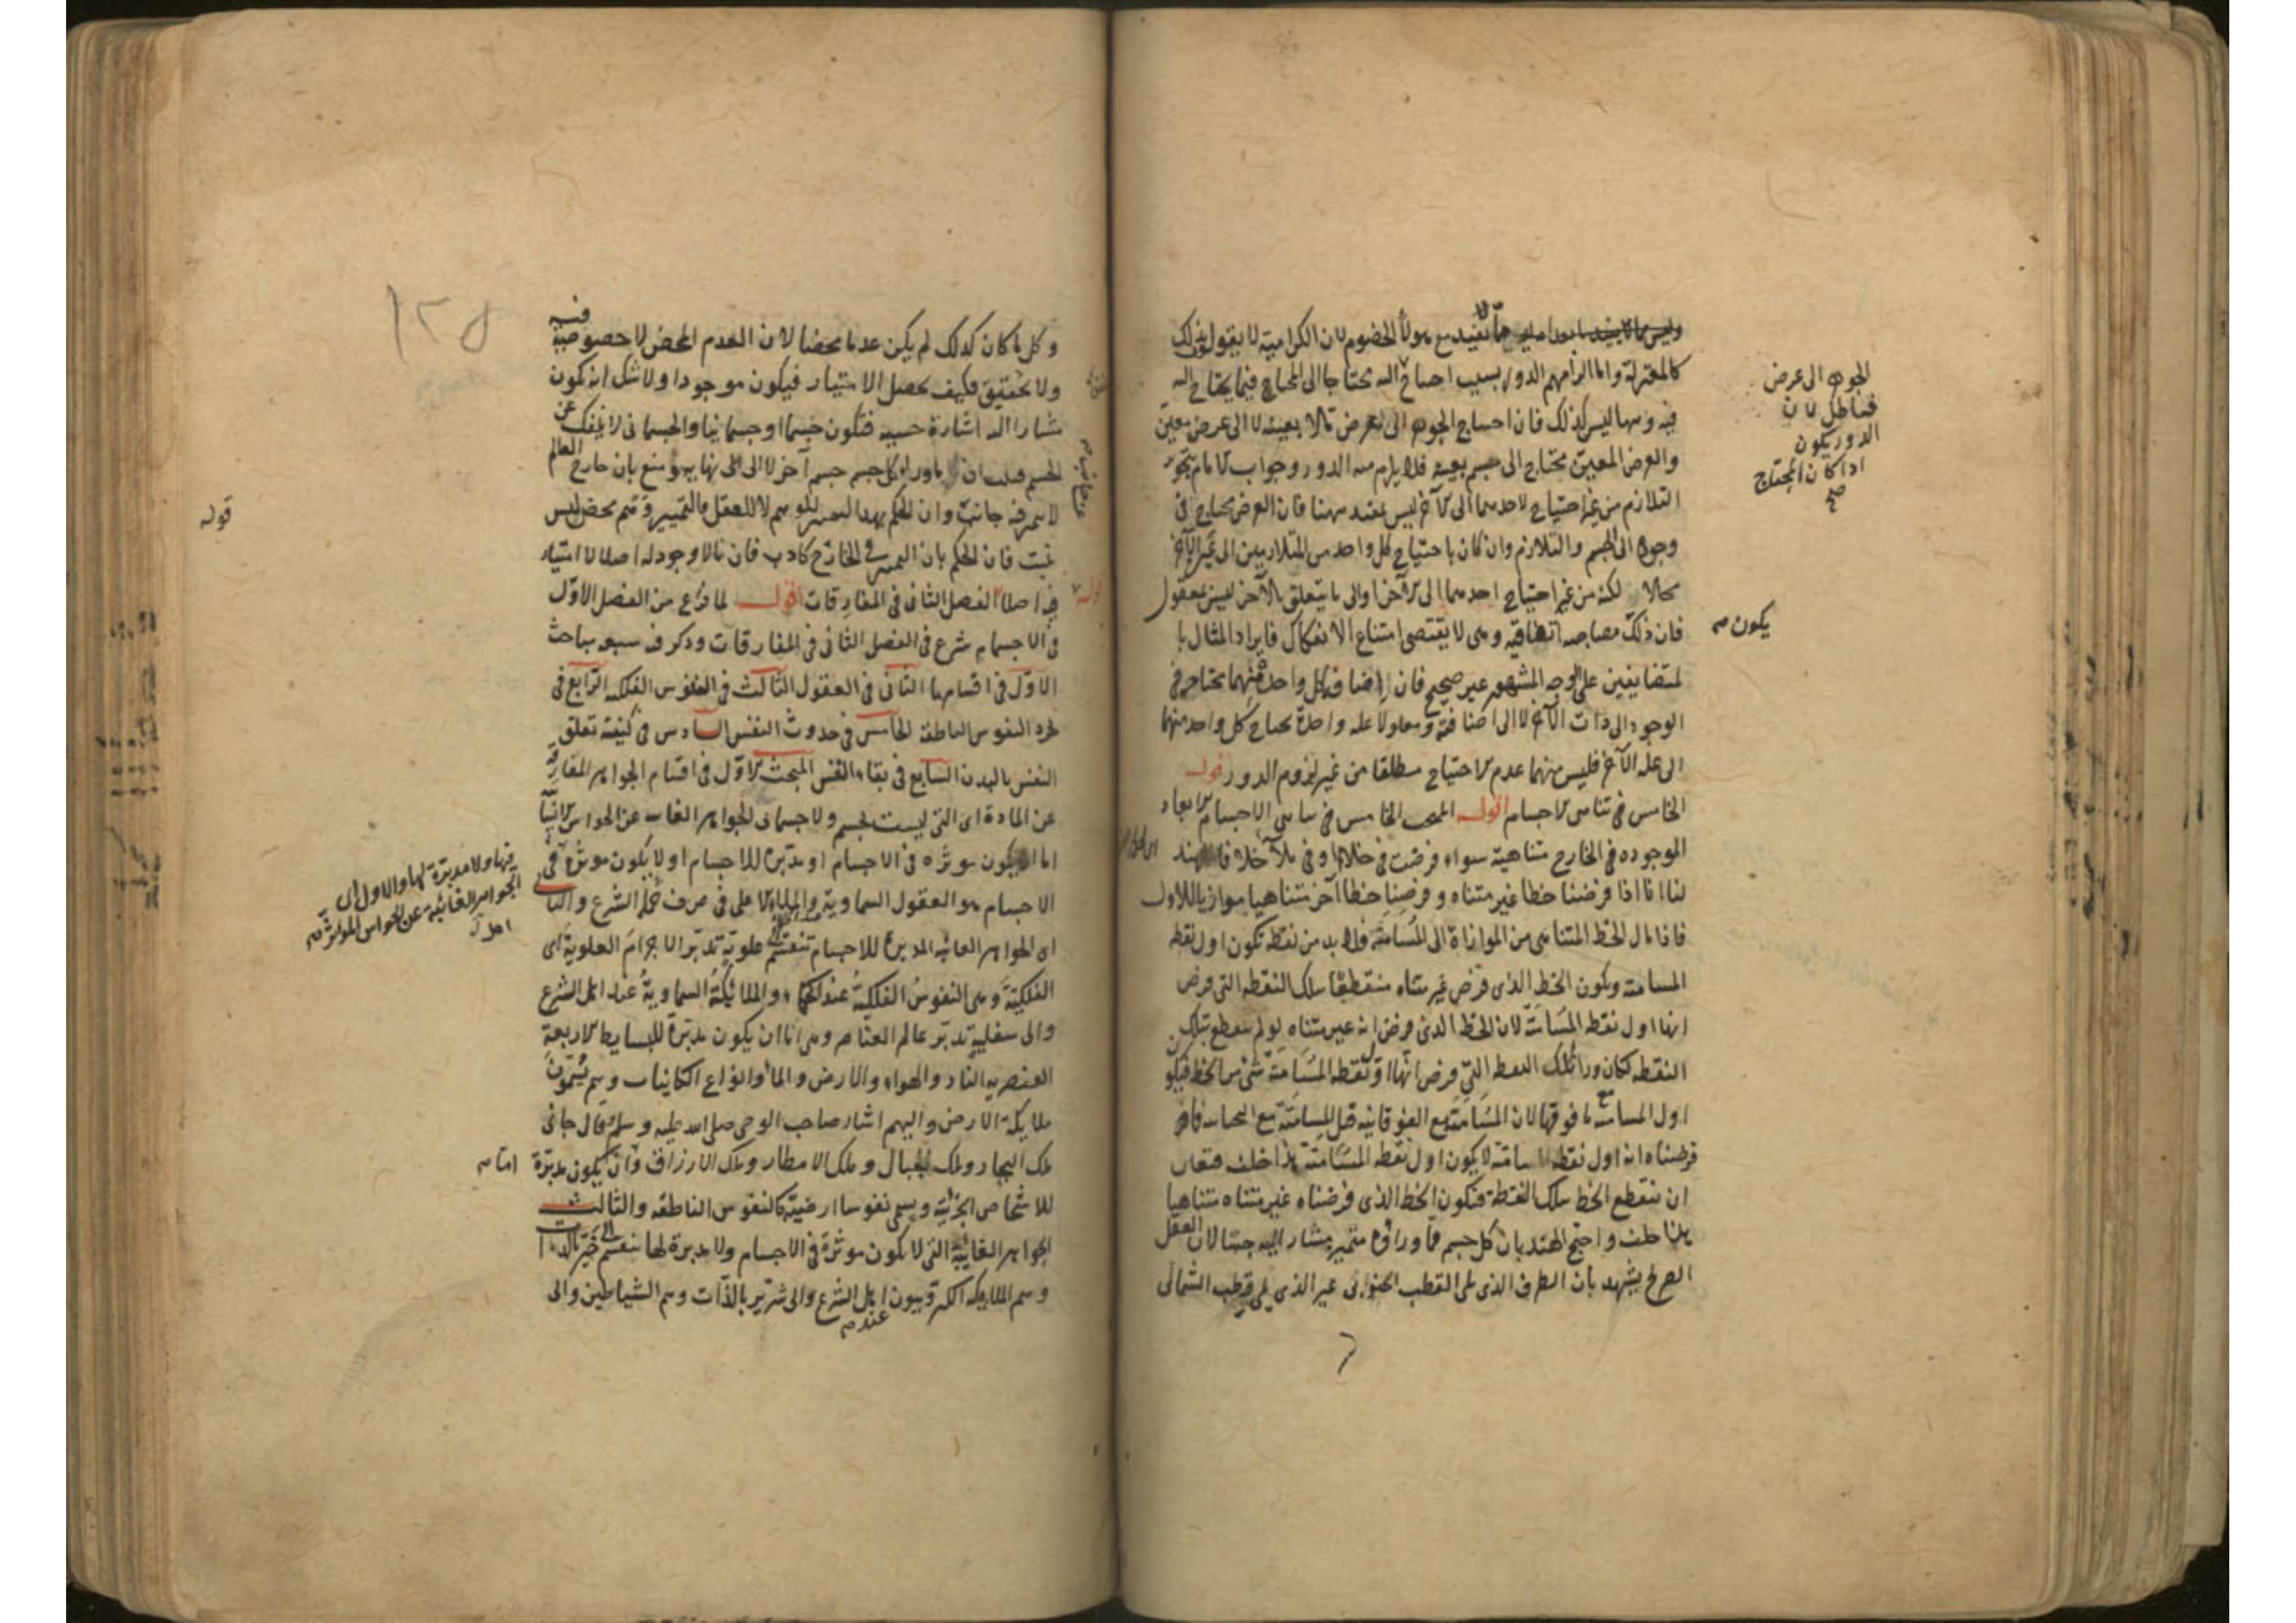 مما لا يفيد مع هولاء الخصوم لان الكرامية لا يقولون بذلك
كالمعتزلة واما الزامهم الدور بسبب احتياج اليه محتاجا الى المحتاج فيما يحتاج اليه
فيه وههنا ليس كذلك فان احتياج الجوهر الى عرض ما لا بعينه لا الى عرض معين
والعرض المعين محتاج الى جسم بعينه فلا يلزم منه الدور وجواب
التلازم من غير احتياج لاحدهما الى الآخر ليس بمفيد ههنا فان العرض محتاج في
وجوده الى الجسم والتلازم وان كان باحتياج كل واحد من المتلازمين الى عين الآخر
محالا لكنه من غير احتياج احدهما الى الآخر او الى ما يتعلق بالآخر ليس بمعقول
فان ذلك مصاحبة اتفاقية وهي لا يقتضي امتناع الانفكاك فايراد المثال با
لمتضايفين على الوجه المشهور غير صحيح فان اضافة كل واحد منهما محتاجة في
الوجود الى ذات الآخر لا الى اضافته ومعلولا علة واحدة يحتاج كل واحد منهما
الى علة الآخر فليس بينهما عدم الاحتياج مطلقا من غير لزوم الدور قوله
الخامس في تناهي الاجسام اقول المبحث الخامس في تناهي الاجسام الابعاد
الموجوده في الخارج متناهية سواء فرضت في خلاء او في ملاء خلافا للهند
لنا انا اذا فرضنا خطا غير متناه وفرضنا خطا آخر متناهيا موازيا للاول
فاذا مال الخط المتناهي من الموازاة الى المسامتة فلا بد من نقطة تكون اول نقطة
المسامتة ويكون الخط الذي فرض غير متناه منقطعا بتلك النقطه التي فرض
انها اول نقطه المسامتة لان الخط الذي فرض انه غير متناه لو لم ينقطع بتلك
النقطه لكان وراء تلك النقطه التي فرض انها اول نقطه المسامتة شئ من الخط فيكون
اول المسامتة مع ما فوقها لان المسامتة مع الفوقانية قبل المسامتة مع التحتانية فما
فرضناه انه اول نقطه المسامتة لا يكون اول نقطه المسامتة هذا خلف فتعين
ان ينقطع الخط بتلك النقطة فيكون الخط الذي فرضناه غير متناه متناهيا
هذا خلف واحتج الهند بان كل جسم فما وراؤه متميز مشار اليه حسا لان العقل
الصريح يشهد بان الطرف الذي يلي القطب الجنوبي غير الذي يلي قطب الشمالي
الجوهر الى عرض
فباطل لان
الدور يكون
اذا كان المحتاج
صح
يكون
١٢٥
وكل ما كان كذلك لم يكن عدما محضا لان العدم المحض لا خصوصية فيه
ولا تحقيق فكيف يحصل الامتياز فيكون موجودا ولا شك انه يكون
مشارا اليه اشارة حسية فتكون جسما او جسمانيا والجسماني لا ينفك عن
الجسم ان ما وراء كل جسم جسم آخر لا الى نهاية ومنع بان خارج العالم
لا يتميز فيه جانب وان الحكم بهذا التميز للوهم لا للعقل والتمييز وهم محض ليس
يثبت فان الحكم بان التميز في الخارج كاذب فان ما لا وجود له اصلا لا امتياز
فيه اصلا الفصل الثاني في المفارقات اقول لما فرغ من الفصل الاول
في الاجسام شرع في الفصل الثاني في المفارقات وذكر فيه سبعه مباحث
الاول في اقسامها الثاني في العقول الثالث في النفوس الفلكيه الرابع في
تجرد النفوس الناطقه الخامس في حدوث النفس السادس في كيفيه تعلق
النفس بالبدن السابع في بقاء النفس المبحث الاول في اقسام الجواهر المفارقة
عن المادة اي التي ليست بجسم ولا جسماني الجواهر الغايبه عن الحواس الانسانية
اما ان يكون موثره في الاجسام او مدبرة للاجسام او لا يكون موثرة في
الاجسام هو العقول السماوية والملاء الاعلى في عرف حملة الشرع والثاني
اي الجواهر الغائبه المدبرة للاجسام تنقسم الى علوية تدبر الاجرام العلوية اي
الفلكية وهي النفوس الفلكية عند الحكماء والملائكة السماوية عند اهل الشرع
والى سفلية تدبر عالم العناصر وهي اما ان يكون مدبرة للبسايط الاربعة
العنصريه النار والهواء والارض والماء وانواع الكاينات وهم يسمون
ملايكة الارض واليهم اشار صاحب الوحي صلى الله عليه وسلم وقال جاني
ملك البحار وملك الجبال وملك الامطار وملك الارزاق وان يكون مدبرة
للاشخاص الجزئية ويسمى نفوسا ارضية كالنفوس الناطقه والثالث
الجواهر الغائبة التي لا يكون موثرة في الاجسام ولا مدبرة لها تنقسم الى خير بالذات
وهم الملايكه الكروبيون عند اهل الشرع والى شرير بالذات وهم الشياطين والى
قوله
فيها ولا مدبرة لها والاول اي
الجواهر الغائبة عن الحواس الموثرة
اما